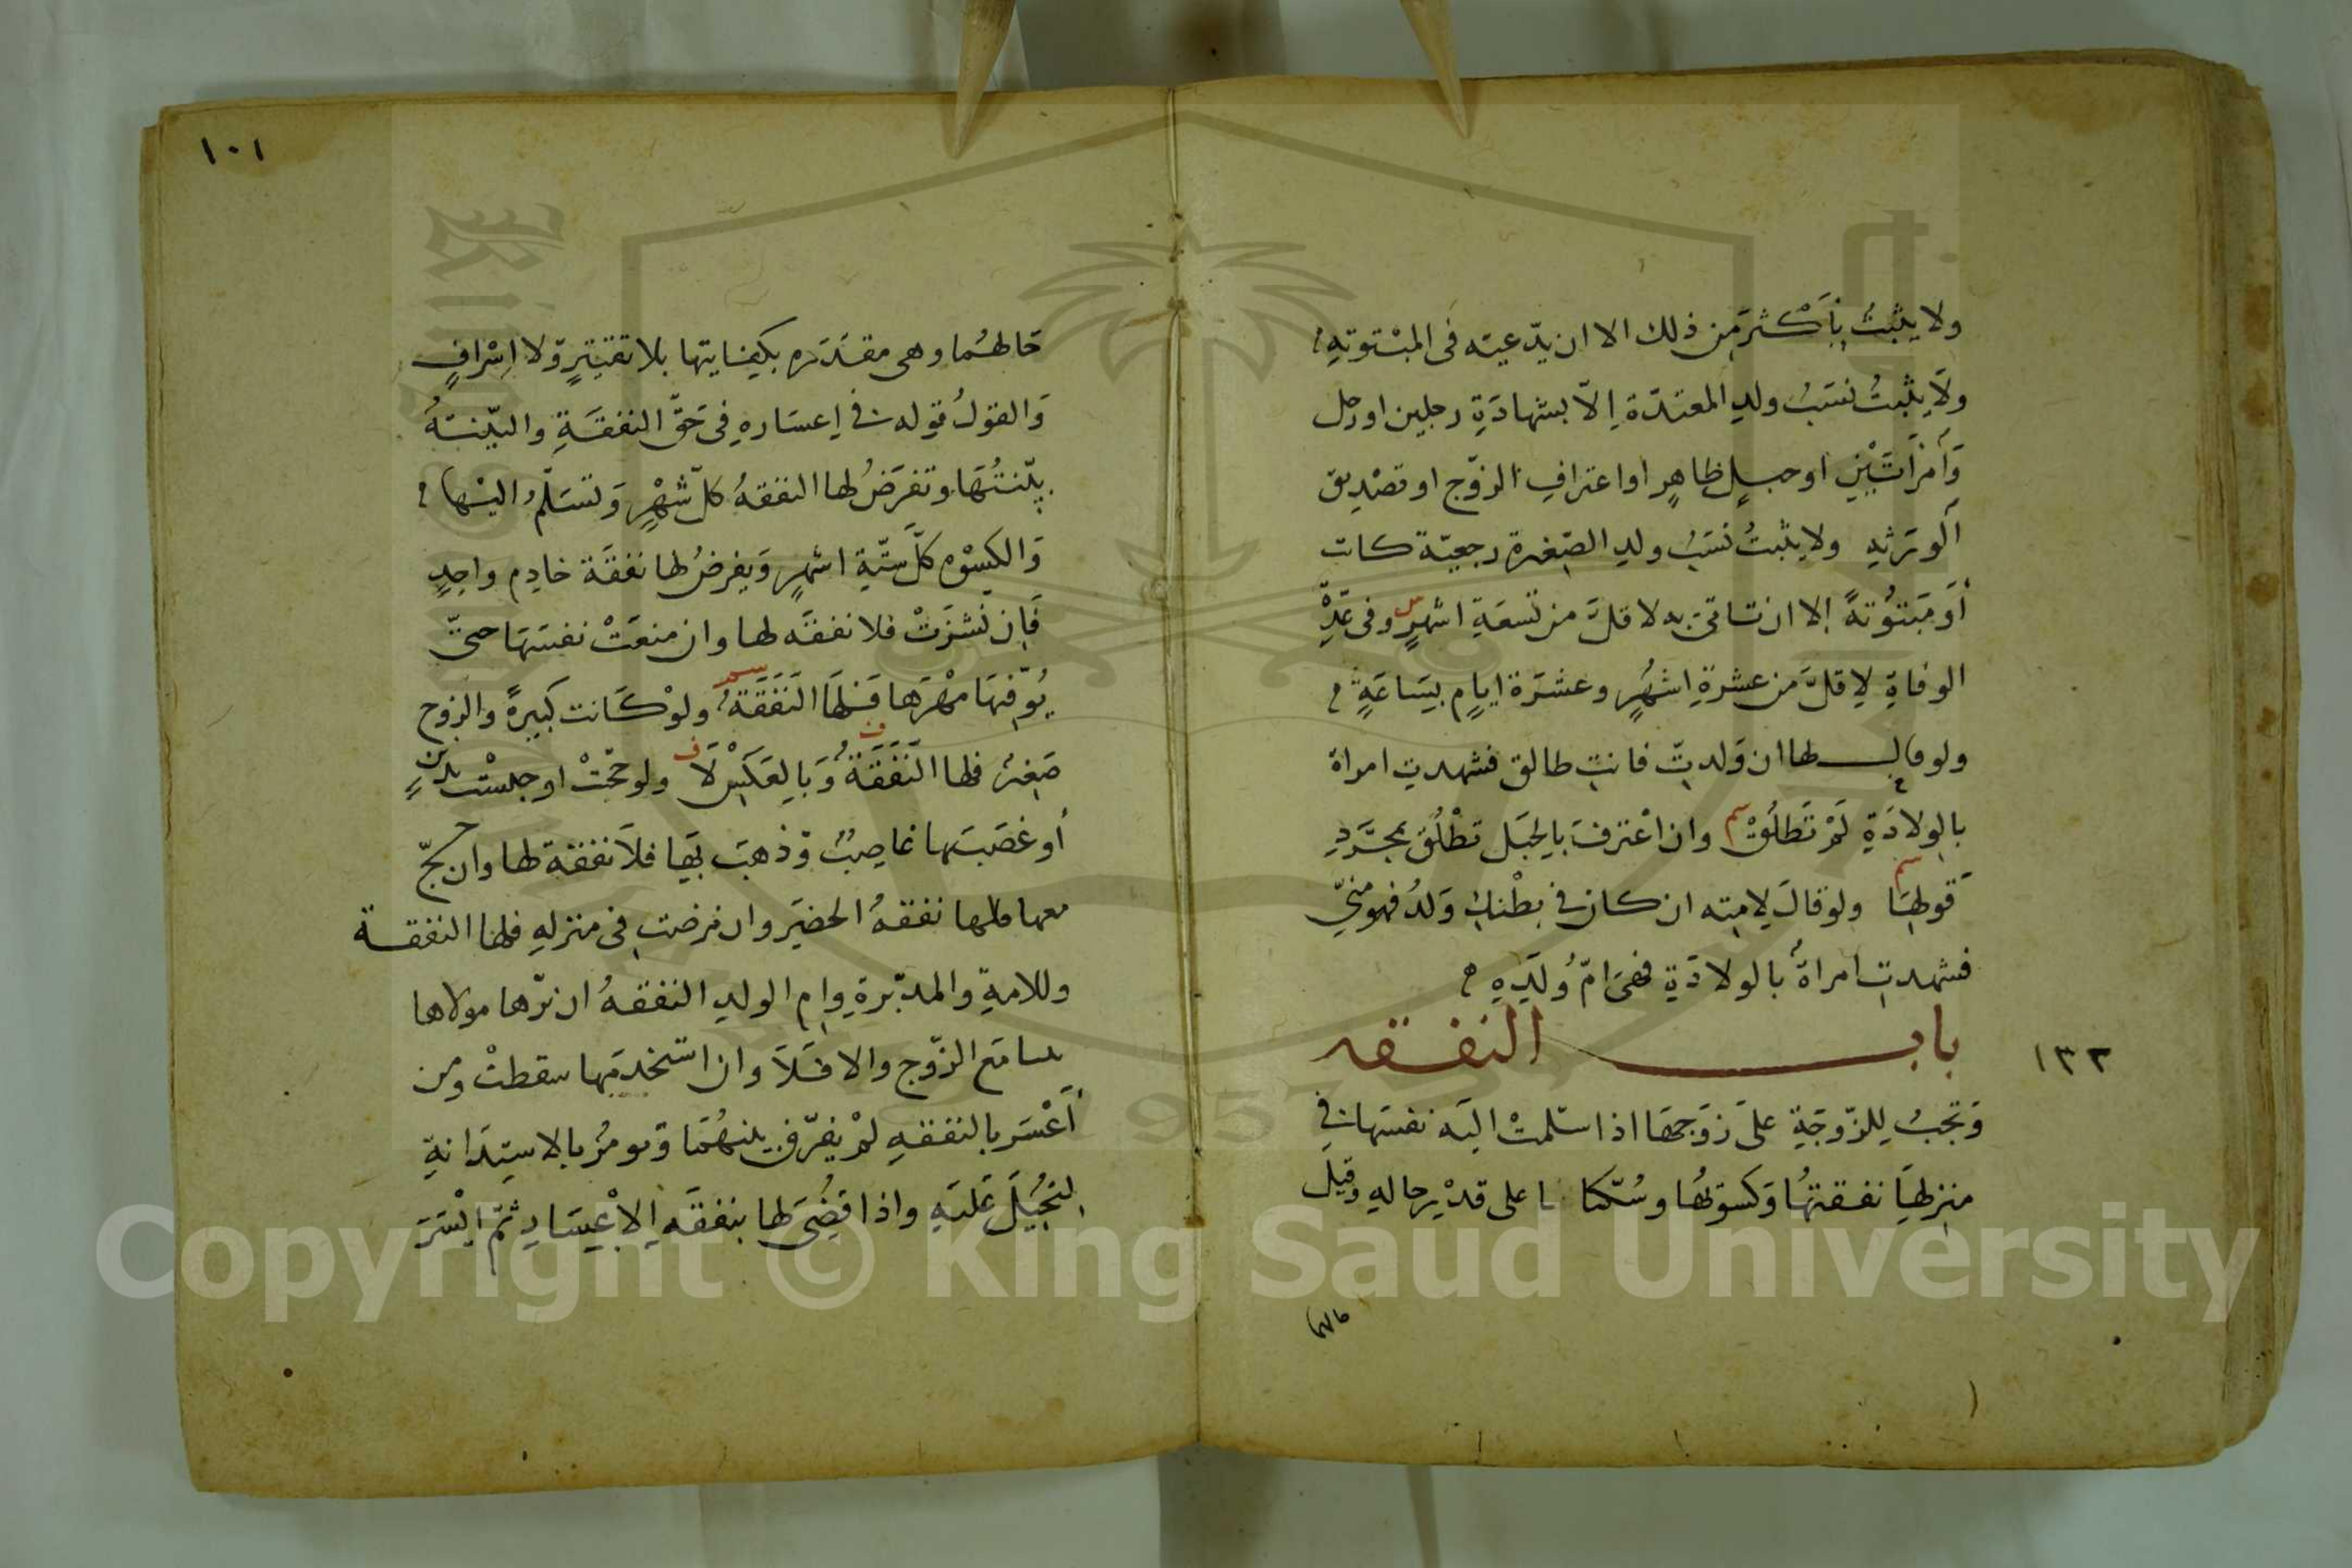 ولا يثبت بأكثر من ذلك الا ان يدّعيه فى المبتوتة
ولا يثبت نسب ولد المعتدة إلا بشهادة رجلين او رجل
وامرأتين او حبل ظاهر او اعتراف الزوج او تصديق
الورثه ولا يثبت نسب ولد الصغيرة رجعيّة كانت
أو مبتوتة إلا ان تاتى به لاقل من تسعة اشهر وفى عدة
الوفاة لاقل من عشرة اشهر وعشرة ايام بساعة
ولو قال لها ان ولدت فانت طالق فشهدت امراة
بالولادة لم تطلق وان اعترف بالحبل تطلق بمجرد
قولها ولو قال لامته ان كان فى بطنك ولد فهو منّي
فشهدت امراة بالولادة فهى امّ ولده
باب النفقه
١٣٢
وتجب للزوجة على زوجها اذا سلمت اليه نفسها فى
منزلها نفقتها وكسوتها وسكناها على قدر حاله وقيل
١٠١
حالهما وهى مقدره بكفايتها بلا تقتير ولا اسراف
والقول قوله فى إعساره فى حق النفقة والبيّنة
بيّنتها وتفرض لها النفقه كل شهر وتسلّم اليها
والكسوه كل ستّة اشهر ويفرض لها نفقة خادم واحد
فإن نشزت فلا نفقه لها وان منعت نفسها حتّى
يوفيها مهرها فلها النفقة ولو كانت كبيرة والزوج
صغير فلها النفقة وبالعكس لا ولو حجّت او حبست بدين
أو غصبها غاصب وذهب بها فلا نفقة لها وان حجّ
معها فلها نفقة الحضر وان مرضت فى منزله فلها النفقة
وللامة والمدبّرة وام الولد النفقه ان بوّأها مولاها
بيتا مع الزوج والا فلا وان استخدمها سقطت ومن
أعسر بالنفقه لم يفرّق بينهما وتومر بالاستدانة
لتحيل عليه واذا قضى لها بنفقه الإعسار ثمّ ايسر